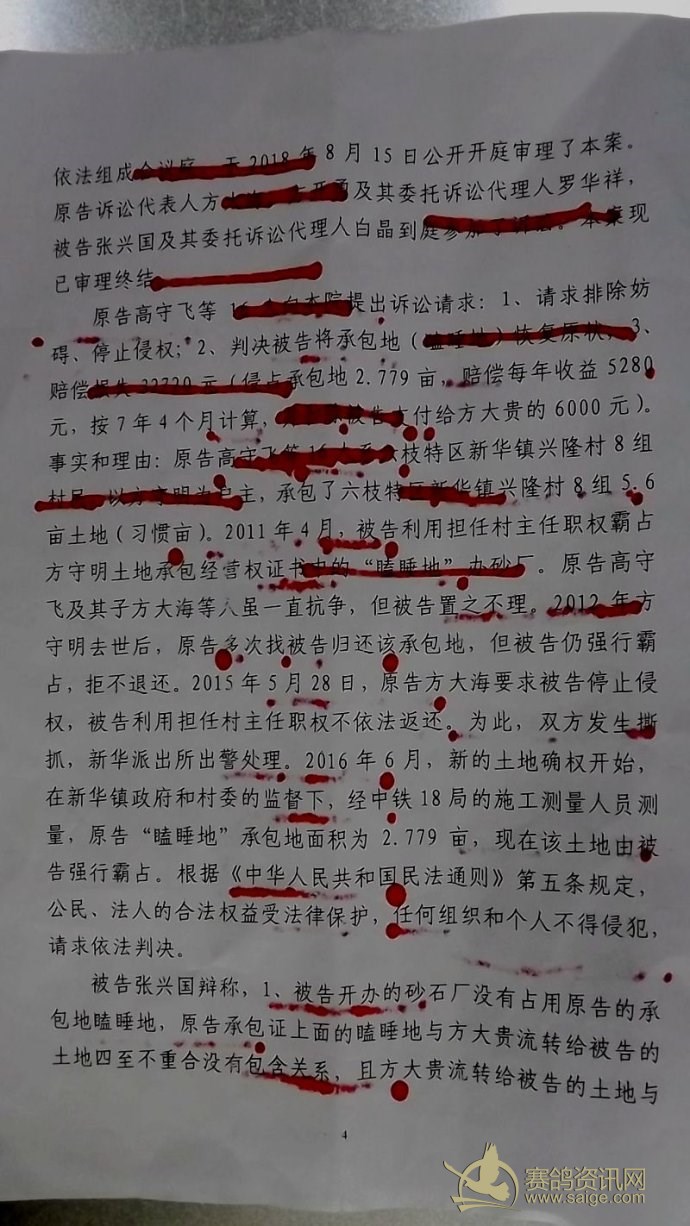 依法组成合议庭，于2018年8月15日公开开庭审理了本案。
原告诉讼代表人方大海、及其委托诉讼代理人罗华祥，
被告张兴国及其委托诉讼代理人白晶到庭参加了诉讼。本案现
已审理终结
原告高守飞等16人向本院提出诉讼请求：1、请求排除妨
碍、停止侵权；2、判决被告将承包地（瞌睡地）恢复原状；3、
赔偿损失32720元（侵占承包地2.779亩，赔偿每年收益5280
元，按7年4个月计算，被告支付给方大贵的6000元）。
事实和理由：原告高守飞等16人系六枝特区新华镇兴隆村8组
村民，以方守明为户主，承包了六枝特区新华镇兴隆村8组5.6
亩土地（习惯亩）。2011年4月，被告利用担任村主任职权霸占
方守明土地承包经营权证书中的“瞌睡地”办砂厂。原告高守
飞及其子方大海等人虽一直抗争，但被告置之不理。2012年方
守明去世后，原告多次找被告归还该承包地，但被告仍强行霸
占，拒不退还。2015年5月28日，原告方大海要求被告停止侵
权，被告利用担任村主任职权不依法返还。为此，双方发生撕
抓，新华派出所出警处理。2016年6月，新的土地确权开始，
在新华镇政府和村委的监督下，经中铁18局的施工测量人员测
量，原告“瞌睡地”承包地面积为2.779亩，现在该土地由被
告强行霸占。根据《中华人民共和国民法通则》第五条规定，
公民、法人的合法权益受法律保护，任何组织和个人不得侵犯，
请求依法判决。
被告张兴国辩称，1、被告开办的砂石厂没有占用原告的承
包地瞌睡地，原告承包证上面的瞌睡地与方大贵流转给被告的
土地四至不重合没有包含关系，且方大贵流转给被告的土地与
4
赛鸽资讯网
www.saige.com